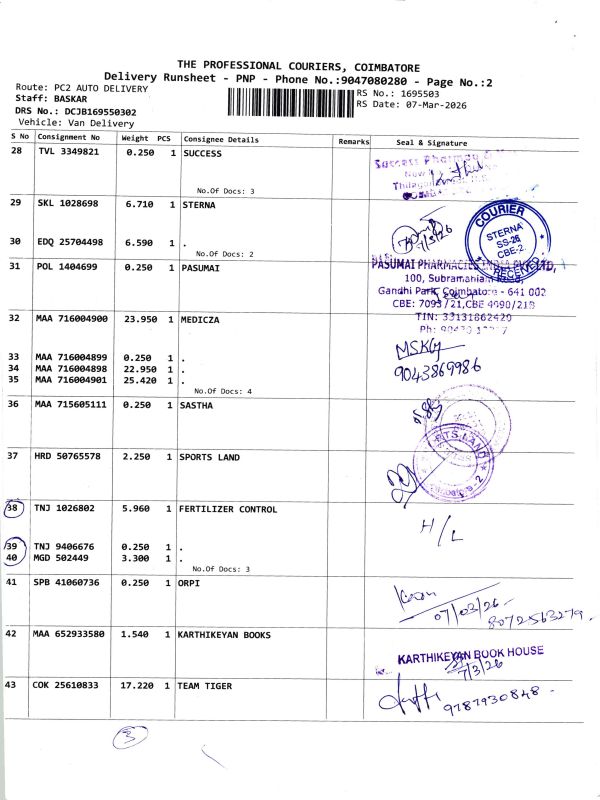 THE PROFESSIONAL COURIERS, COIMBATORE
Delivery Runsheet - PNP - Phone No.:9047080280 - Page No.:2
Route: PC2 AUTO DELIVERY
Staff: BASKAR
DRS No.: DCJB169550302
Vehicle: Van Delivery
RS No.: 1695503
RS Date: 07-Mar-2026
S No Consignment No Weight PCS Consignee Details Remarks Seal & Signature
28 TVL 3349821 0.250 1 SUCCESS
No.Of Docs: 3
Success Pharma
29 SKL 1028698 6.710 1 STERNA
7/3/26
COURIER
STERNA
SS-26
CBE-2
RECEIVED
30 EDQ 25704498 6.590 1 .
No.Of Docs: 2
31 POL 1404699 0.250 1 PASUMAI
PASUMAI PHARMACIES INDIA PVT LTD,
100, Subramaniam
Gandhi Park, Coimbatore - 641 002
CBE: 7093/21,CBE 4090/218
TIN: 33131862420
32 MAA 716004900 23.950 1 MEDICZA
33 MAA 716004899 0.250 1 .
34 MAA 716004898 22.950 1 .
35 MAA 716004901 25.420 1 .
No.Of Docs: 4
9043869986
36 MAA 715605111 0.250 1 SASTHA
37 HRD 50765578 2.250 1 SPORTS LAND
38 TNJ 1026802 5.960 1 FERTILIZER CONTROL
H/L
39 TNJ 9406676 0.250 1 .
40 MGD 502449 3.300 1 .
No.Of Docs: 3
41 SPB 41060736 0.250 1 ORPI
07/03/26
8072563279
42 MAA 652933580 1.540 1 KARTHIKEYAN BOOKS
KARTHIKEYAN BOOK HOUSE
7/3/26
43 COK 25610833 17.220 1 TEAM TIGER
9787930848
3